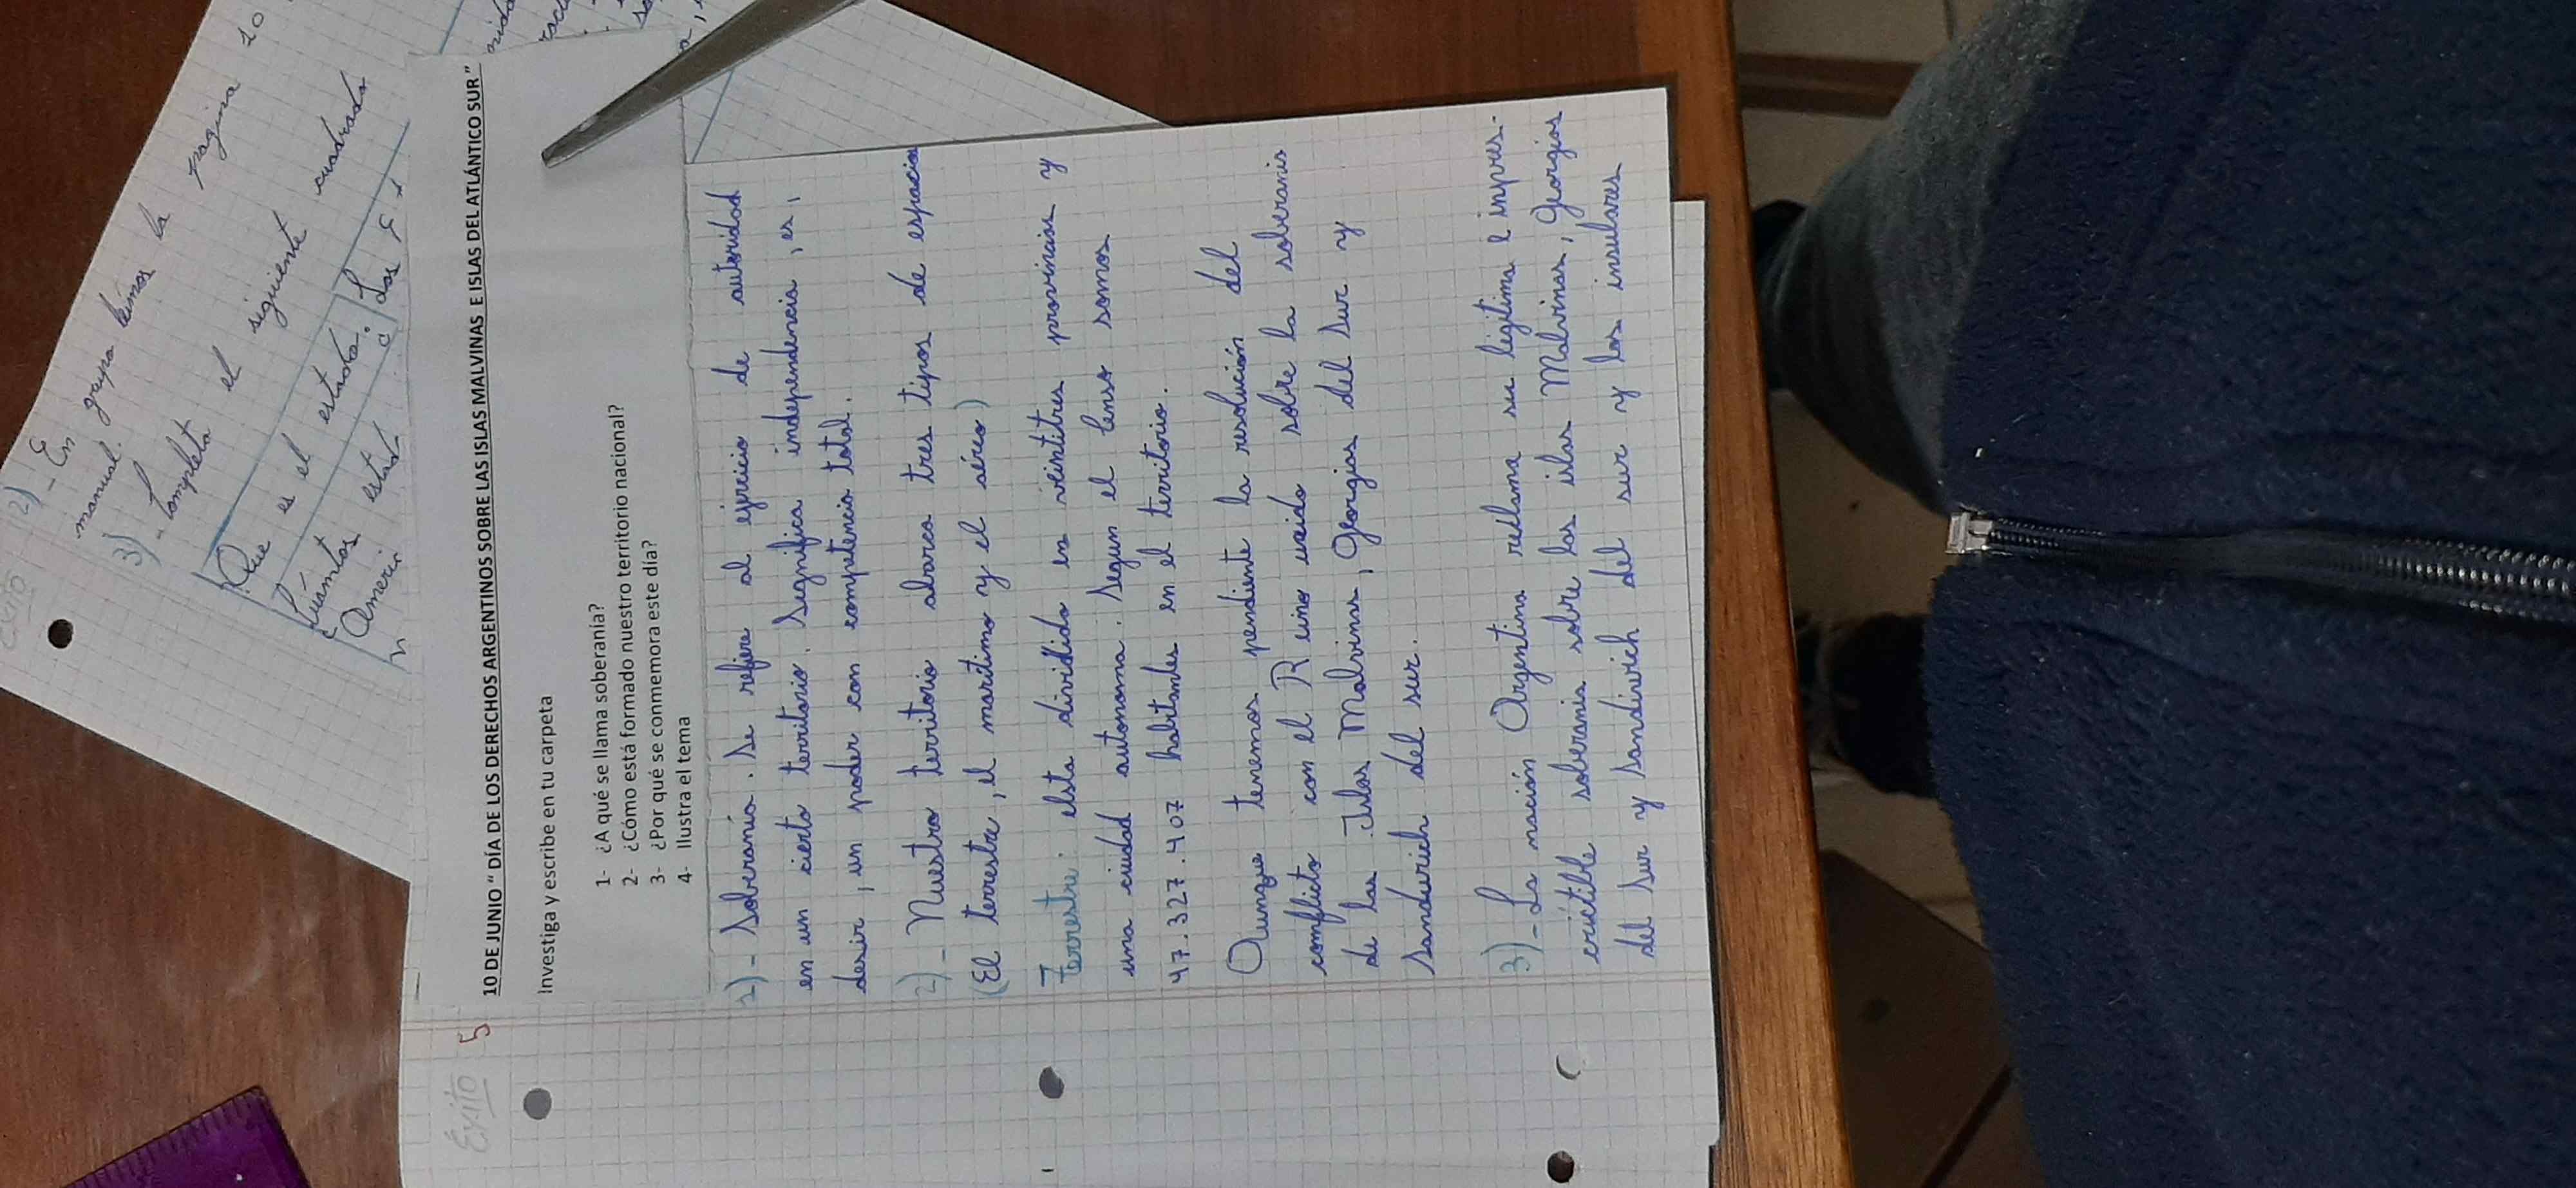 2)- En grupo leímos la pagina 10
manual.
3)- Completa el siguiente cuadrado
¿Que es el estado.
¿Cuántos estad
Americ
Éxito 5
10 DE JUNIO " DÍA DE LOS DERECHOS ARGENTINOS SOBRE LAS ISLAS MALVINAS E ISLAS DEL ATLÁNTICO SUR"
Investiga y escribe en tu carpeta
1- ¿A qué se llama soberanía?
2- ¿Cómo está formado nuestro territorio nacional?
3- ¿Por qué se conmemora este día?
4- Ilustra el tema
1)- Soberanía. Se refiere al ejericio de autoridad
en un cierto territorio. Significa independencia, es,
desir, un poder con competencia total.
2)- Nuestro territorio abarca tres tipos de espacios
(El terrestre, el maritimo y el aéreo)
Terrestre: elsta dividido en veintitres provincias y
una ciudad autonoma. Segun el Censo somos
47.327.407 habitantes en el territorio.
Aunque tenemos pendiente la resolución del
conflicto con el Reino unido sobre la soberanis
de las Islas Malvinas, Georgias del Sur y
Sandwich del sur.
3)- La nación Argentina reclama su ligitima e inpres-
crictible soberania sobre las islas Malvinas, Georgias
del Sur y Sandiwich del sur y los insulares